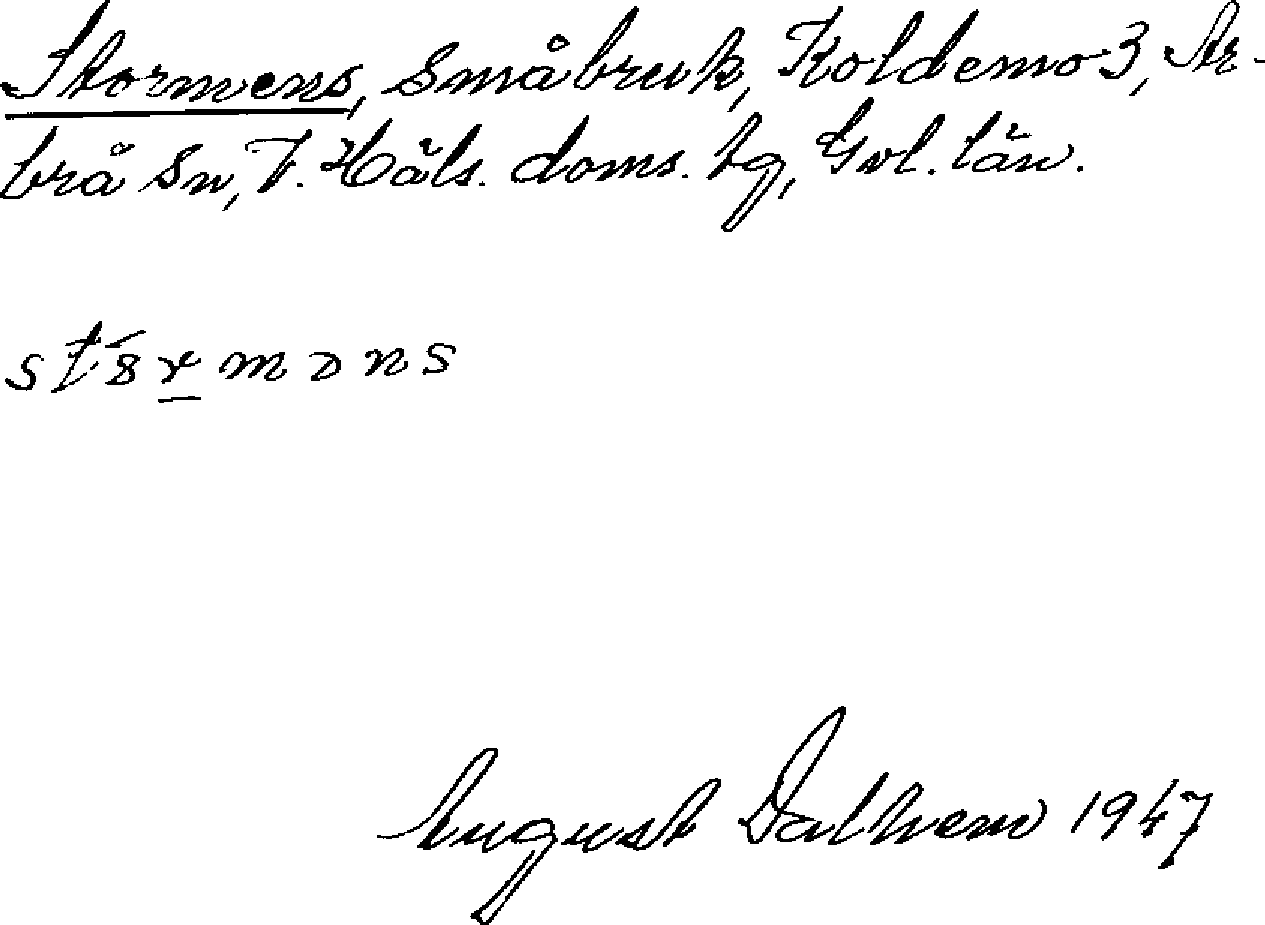 Stormens, småbruk, Koldemo 3, Ar-
brå sn, V. Häls. doms. tg, Gvl. län.
August Dalhem 1947